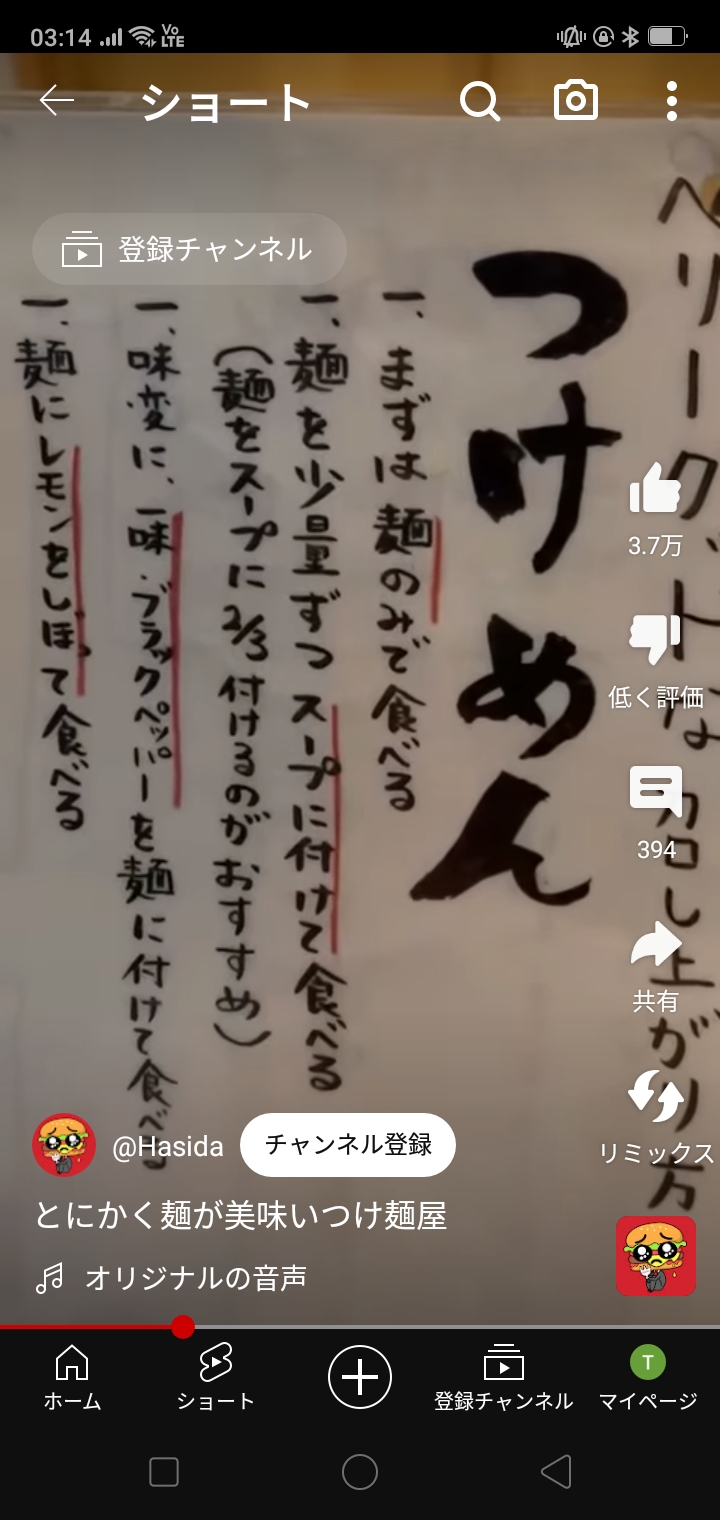 03:14
VoLTE
ショート
登録チャンネル
つけめん
一、まずは麺のみで食べる
一、麺を少量ずつスープに付けて食べる
（麺をスープに2/3付けるのがおすすめ）
一、味変に、一味・ブラックペッパーを麺に付けて食べる
一、麺にレモンをしぼって食べる
3.7万
低く評価
394
共有
リミックス
@Hasida
チャンネル登録
とにかく麺が美味いつけ麺屋
オリジナルの音声
ホーム
ショート
登録チャンネル
T
マイページ